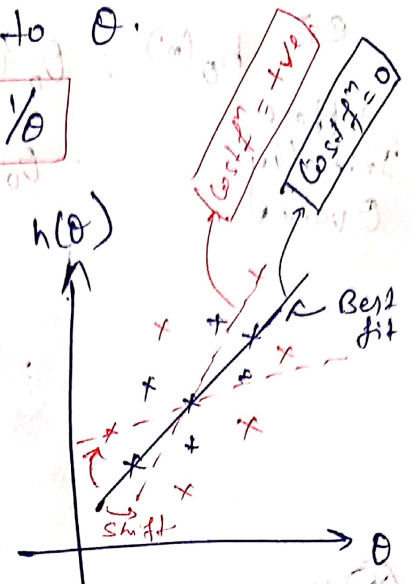 to θ.
1/θ
Cost fⁿ = +ve
Cost fⁿ = 0
h(θ)
Best
fit
Shift
θ